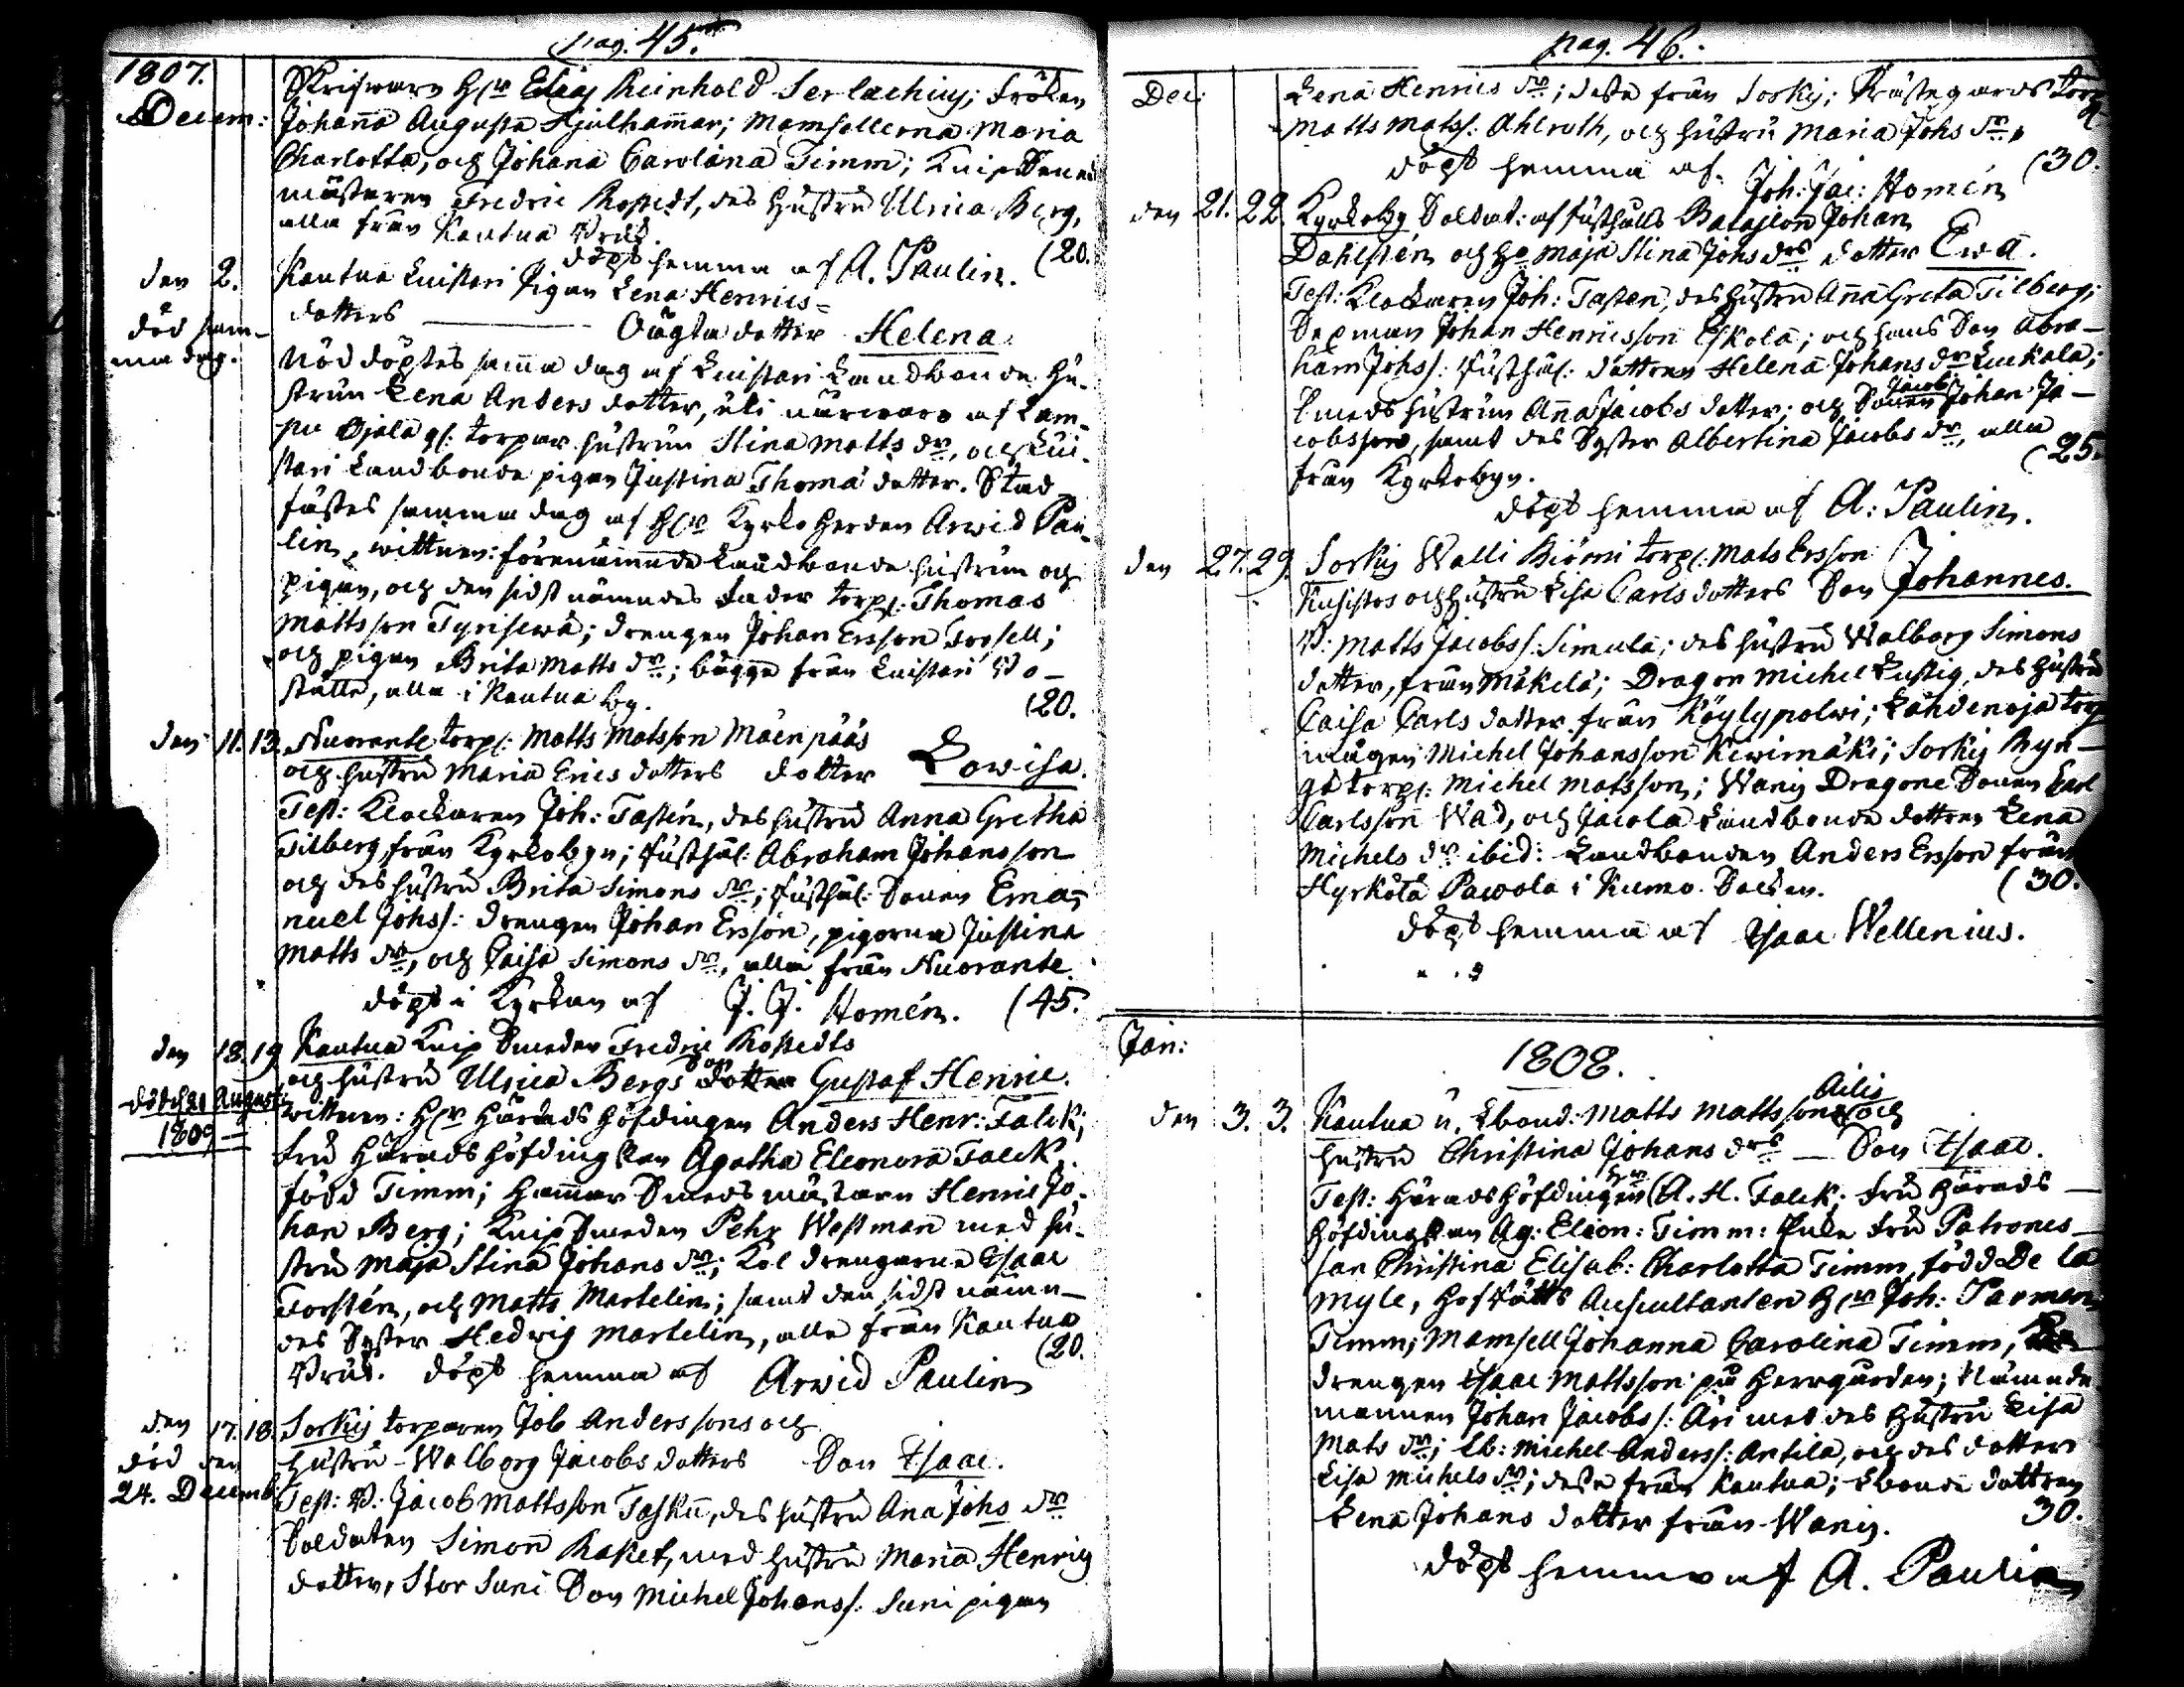 pag. 45.
1807.
Decem:
Skrifwaren H:r Elias Reinhold Serlachius; Fröken
Johanna Augusta Hjulhammar; Mamsellerna Maria
Charlotta, och Johana Carolina Timm; Knip Smeds
mästaren Fredric Rostedt, des Hustru Ulrica Berg,
alla från Kautua Bruk.
döpt hemma af A. Paulin. (20.
den 2. Kautua Luistari Pigan Lena Henrics=
dotters — Oägta dotter Helena
död sam-
ma dag.
Nöd döptes samma dag af Luistari Landbonde Hu-
strun Lena Anders dotter, uti närwaro af Lam-
pu Ojala torpar hustrun Stina Matts dr, och Lui-
stari Landbonde pigan Justina Thomä dotter. Stad
fästes samma dag af H:r Kyrko Herden Arwid Pau-
lin, wittnen: förenämnde Landbonde hustrun och
pigan, och den sidst nämndes fader torp: Thomas
Mattsson Tyrisewä; drengen Johan Ersson Forsell;
och pigan Brita Matts dr; bägge från Luistari Bo-
ställe, alla i Kautua by. (20.
den 11. 13. Nuorante torp: Matts Matsson Mäenpääs
och hustru Maria Erics dotters dotter Lowisa.
Test: Klockaren Joh: Tastén, des hustru Anna Gretha
Tilberg, från Kyrkobyn; Rusthål: Abraham Johansson
och des hustru Brita Simons dr; Rusthål: Sonen Ema-
nuel Johs: drengen Johan Ersson, pigorna Justina
Matts dr, och Caisa Simons dr, alla från Nuorante.
döpt i Kyrkan af J. J. Homén. (45.
den 18. 19 Kautua Knip Smeden Fredric Rostedts
och hustru Ulrica Bergs Son Gustaf Henric.
död d 21 August:
1809
wittnen: H:r Härads Höfdingen Anders Henr: Falck;
Fru Härads Höfdingskan Agatha Eleonora Falck,
född Timm; Hammar Smeds mästaren Henric Jo-
han Berg; Knip Smeden Pehr Westman med hu-
stru Maja Stina Johans dr; Kol drengarna Isaac
Forstén, och Matts Martelin; samt den sidst nämn-
des Syster Hedwig Martelin, alla från Kautua
Bruk. döpt hemma af Arwid Paulin (20.
den 17. 18. Sorkis torparen Job Anderssons och
död den
24. Decemb:
hustru Walborg Jacobs dotters Son Isaac.
Test: B: Jacob Mattsson Tasku, des hustru Ana Johs dr
Soldaten Simon Raket, med hustru Maria Henrics
dotter, Stor Suni Son Michel Johanss: Suni pigan
pag. 46.
Dec:
Lena Henrics dr; dessa från Sorkis; Prästegårds torp
Matts Matss: Ahlroth, och hustru Maria Johs dr.
döpt hemma af Joh: Jac: Homén (30.
den 21. 22. Kyrkoby Soldat: af Rusthålls Bataillon Johan
Dahlstén och H:o Maja Stina Johs drs dotter Ewa.
Test: Klockaren Joh: Tasten, des hustru Ana Greta Tilberg;
Sexman Johan Henricsson Eskola; och hans Son Abra-
ham Johss: Rusthål: dottren Helena Johans dr Luukala;
Smeds hustrun Anna Jacobs dotter; och Sonen Jacob Johan Ja-
cobsson, samt des Syster Albertina Jacobs dr, alla
från Kyrkobyn. (25.
döpt hemma af A: Paulin.
den 27. 29. Sorkis Walli Biörni torp: Mats Ersson
Kuhistos och hustru Lisa Carls dotters Son Johannes.
B: Matts Jacobs: Simula; des hustru Walborg Simons
dotter, från Mäkelä; Dragon Michel Lustig, des hustru
Caisa Carls dotter från Köylypolwi; Lähdenoja torp
mågen Michel Johansson Kiwimäki; Sorkis Ryn-
gö torp: Michel Matsson; Wanis Dragone Sonen Carl
Carlsson Wad, och Jacola Landbonde dottren Lena
Michels dr ibid: Landbonden Anders Ersson från
Hyrkölä Pawola i Kumo Socken. (30.
döpt hemma af Isaac Wellenius.
Jan:
1808.
den 3. 3. Kautua u. Lbond: Matts Mattssons Ailis och
hustru Christina Johans drs — Son Isaac.
Test: Härads Höfdingen H:r A. H. Falck; Fru Härads-
höfdingskan Ag: Eleon: Timm: Enke Fru Patrones-
san Christina Elisab: Charlotta Timm, född De la
Myle, Hofrätts Auscultanten H:r Joh: Parmen
Timm; Mamsell Johanna Carolina Timm,
drengen Isaac Mattsson på Herrgården; Nämnde
mannen Johan Jacobs: Äri med des Hustru Lisa
Mats dr; Lb: Michel Anderss: Antila, och des dotter
Lisa Michels dr; dessa från Kautua; Lbonde dottren
Lena Johans dotter från Wanis. 30.
döpt hemma af A. Paulin